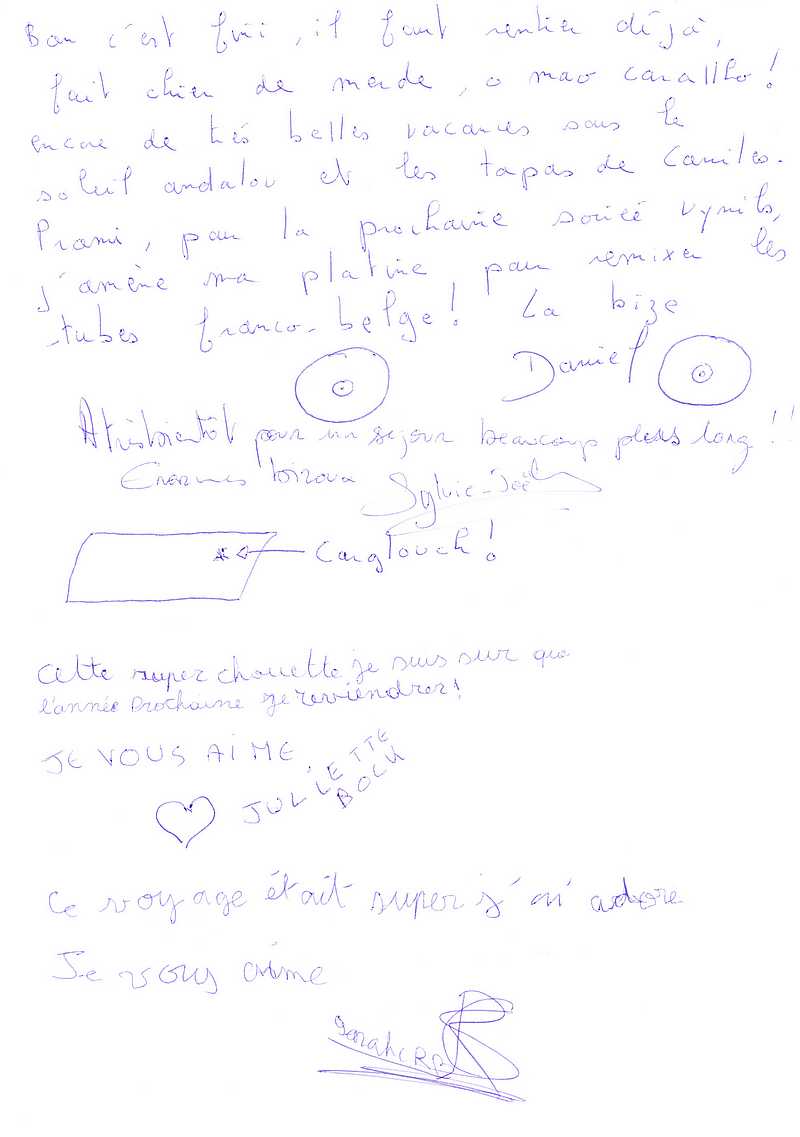 Bon c'est fini, il faut rentrer déjà,
fait chier de merde, o mao carallho!
encore de très belles vacances sous le
soleil andalou et les tapas de Caniles.
Promi, pour la prochaine soirée vynils,
j'amène ma platine pour remixer les
tubes franco-belge! La bize
Daniel
A très bientôt pour un séjour beaucoup plus long!!
Enormes bizoux Sylvie-Joël
Cargtouch!
Cette super chouette je suis sur que
l'année prochaine je reviendrer!
JE VOUS AIME
JULIETTE
BOLU
Ce voyage était super j'ai adore
Je vous aime
Sarah CRB